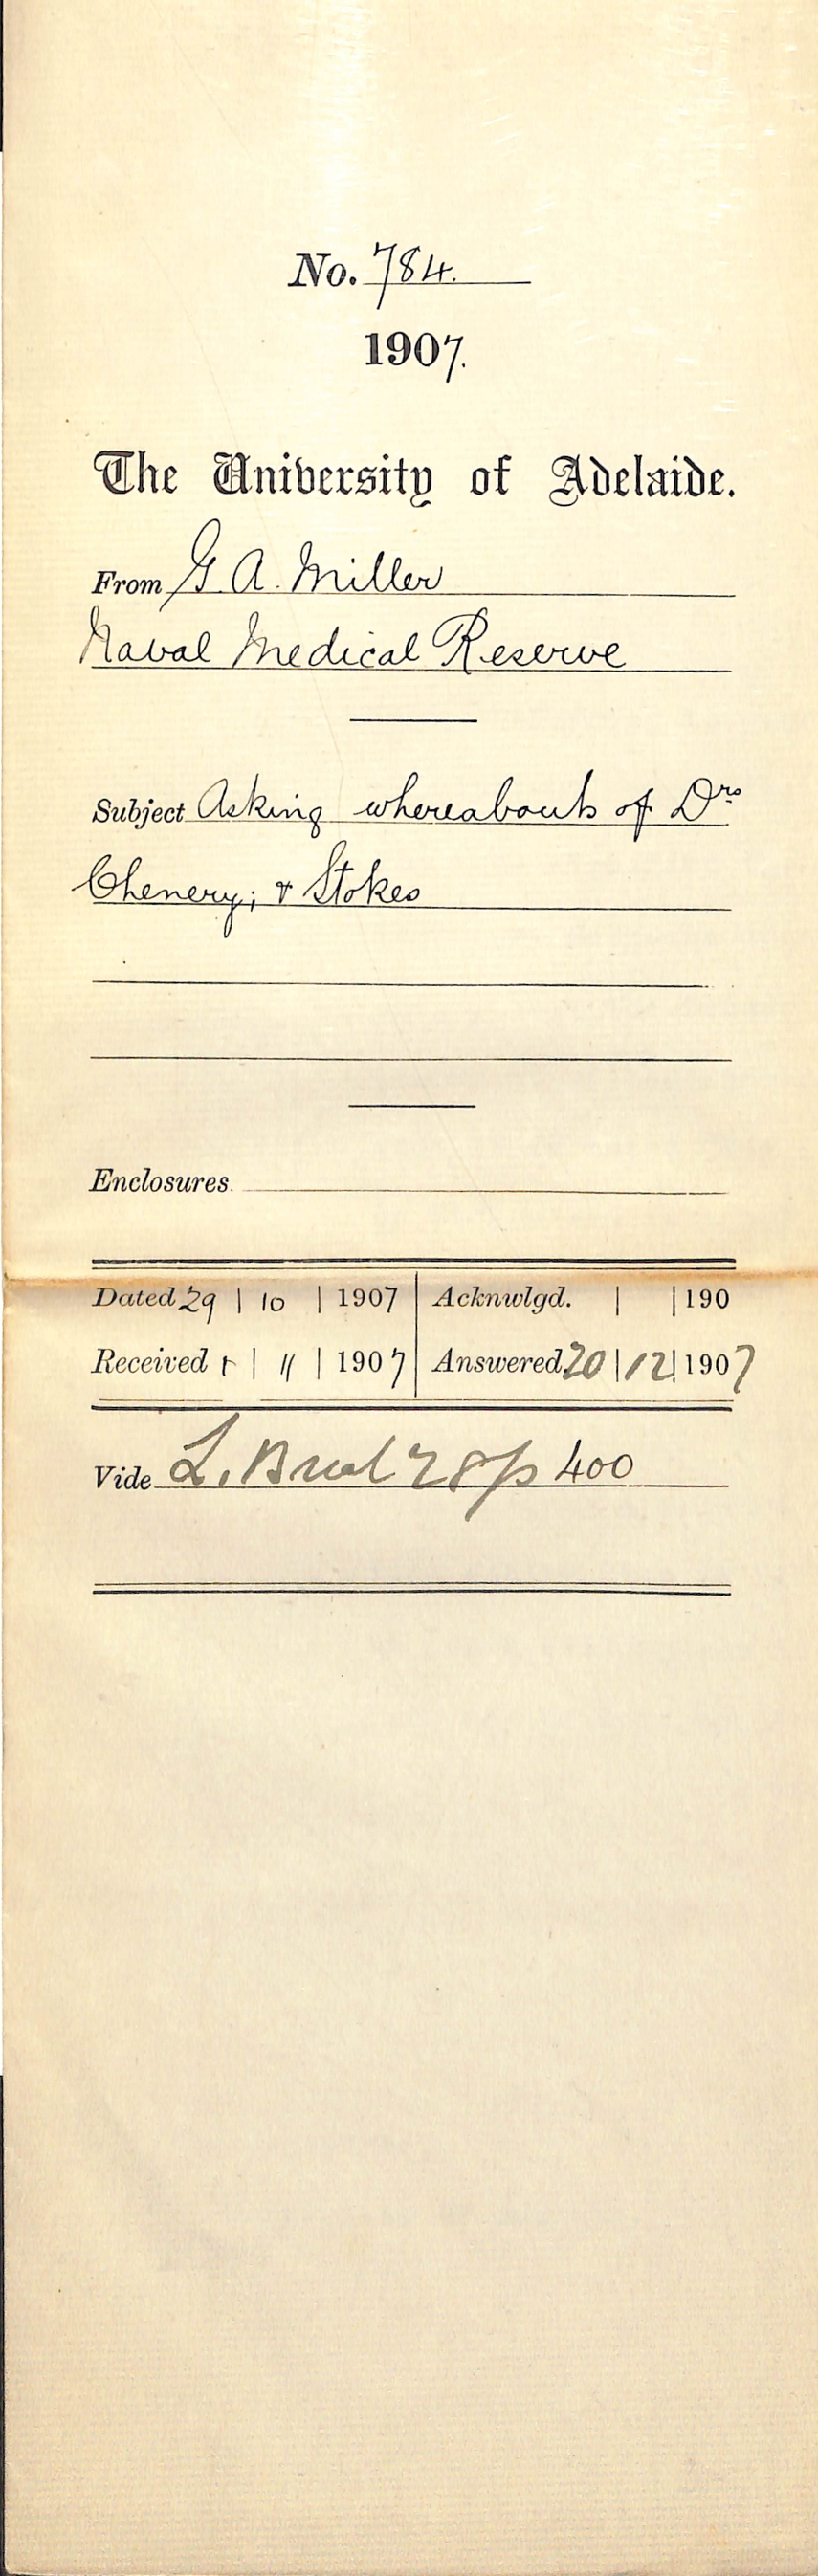 No. 784.
1907.
The University of Adelaide.
From G. A. Miller
Naval Medical Reserve
Subject Asking whereabouts of Drs
Chenery; & Stokes
Enclosures
Dated 29 | 10 | 1907 Acknwlgd. | | 190
Received | 11 | 1907 Answered 20 | 12 | 1907
Vide L. p 400